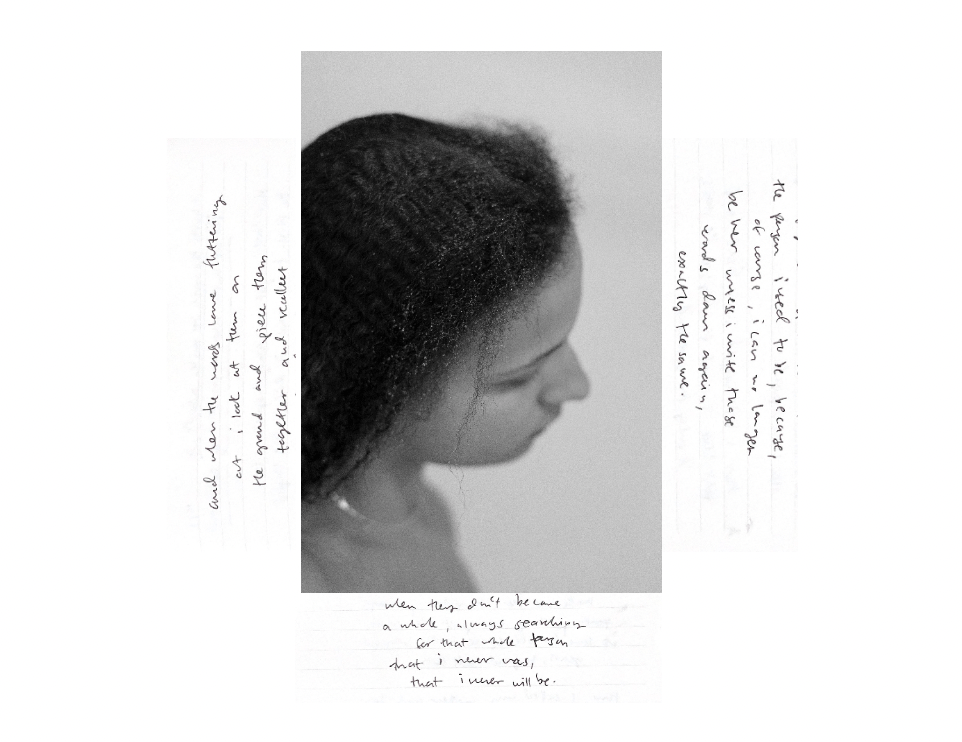 and when the words come fluttering
out i look at them on
the ground and piece them
together and recollect
the person i used to be, because,
of course, i can no longer
be her unless i write those
words down again,
exactly the same.
when they don't become
a whole, always searching
for that whole person
that i never was,
that i never will be.